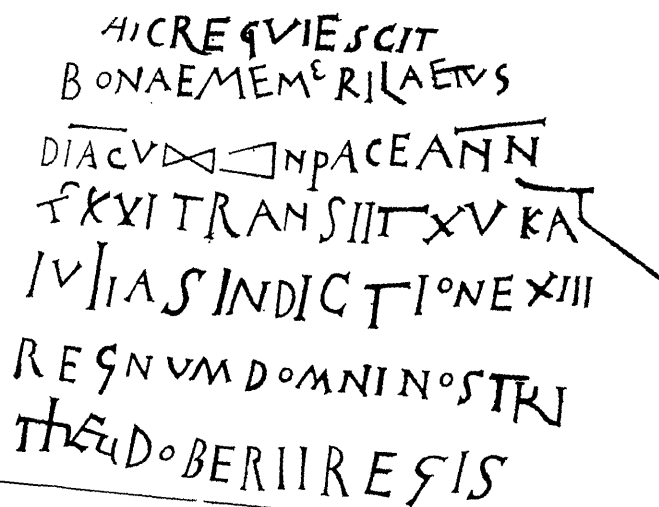 HIC REQVIESCIT
BONAE MEMERI LAETVS
DIAC V NPACE ANN
XXVI TRANSIIT XV KAL
IVLIAS INDICTIONE XIII
REGNVM DOMNI NOSTRI
THEUDOBERTI REGIS